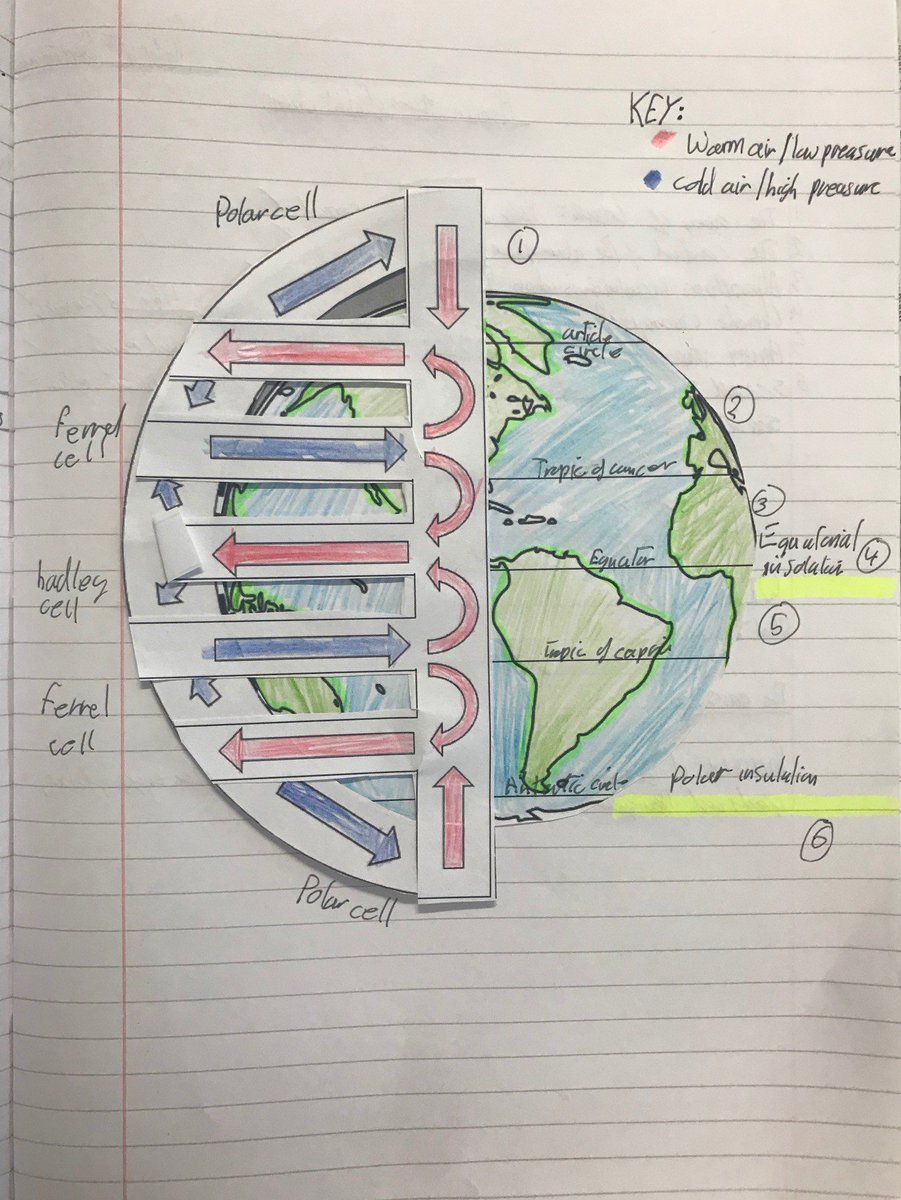 KEY:
Warm air/low preasure
cold air/high preasure
Polar cell
1
article
circle
2
ferrel
cell
Tropic of cancer
3
Equatorial
insolation
4
Equator
hadley
cell
5
Tropic of capri
ferrel
cell
Antartic circle
polar insulation
6
Polar cell